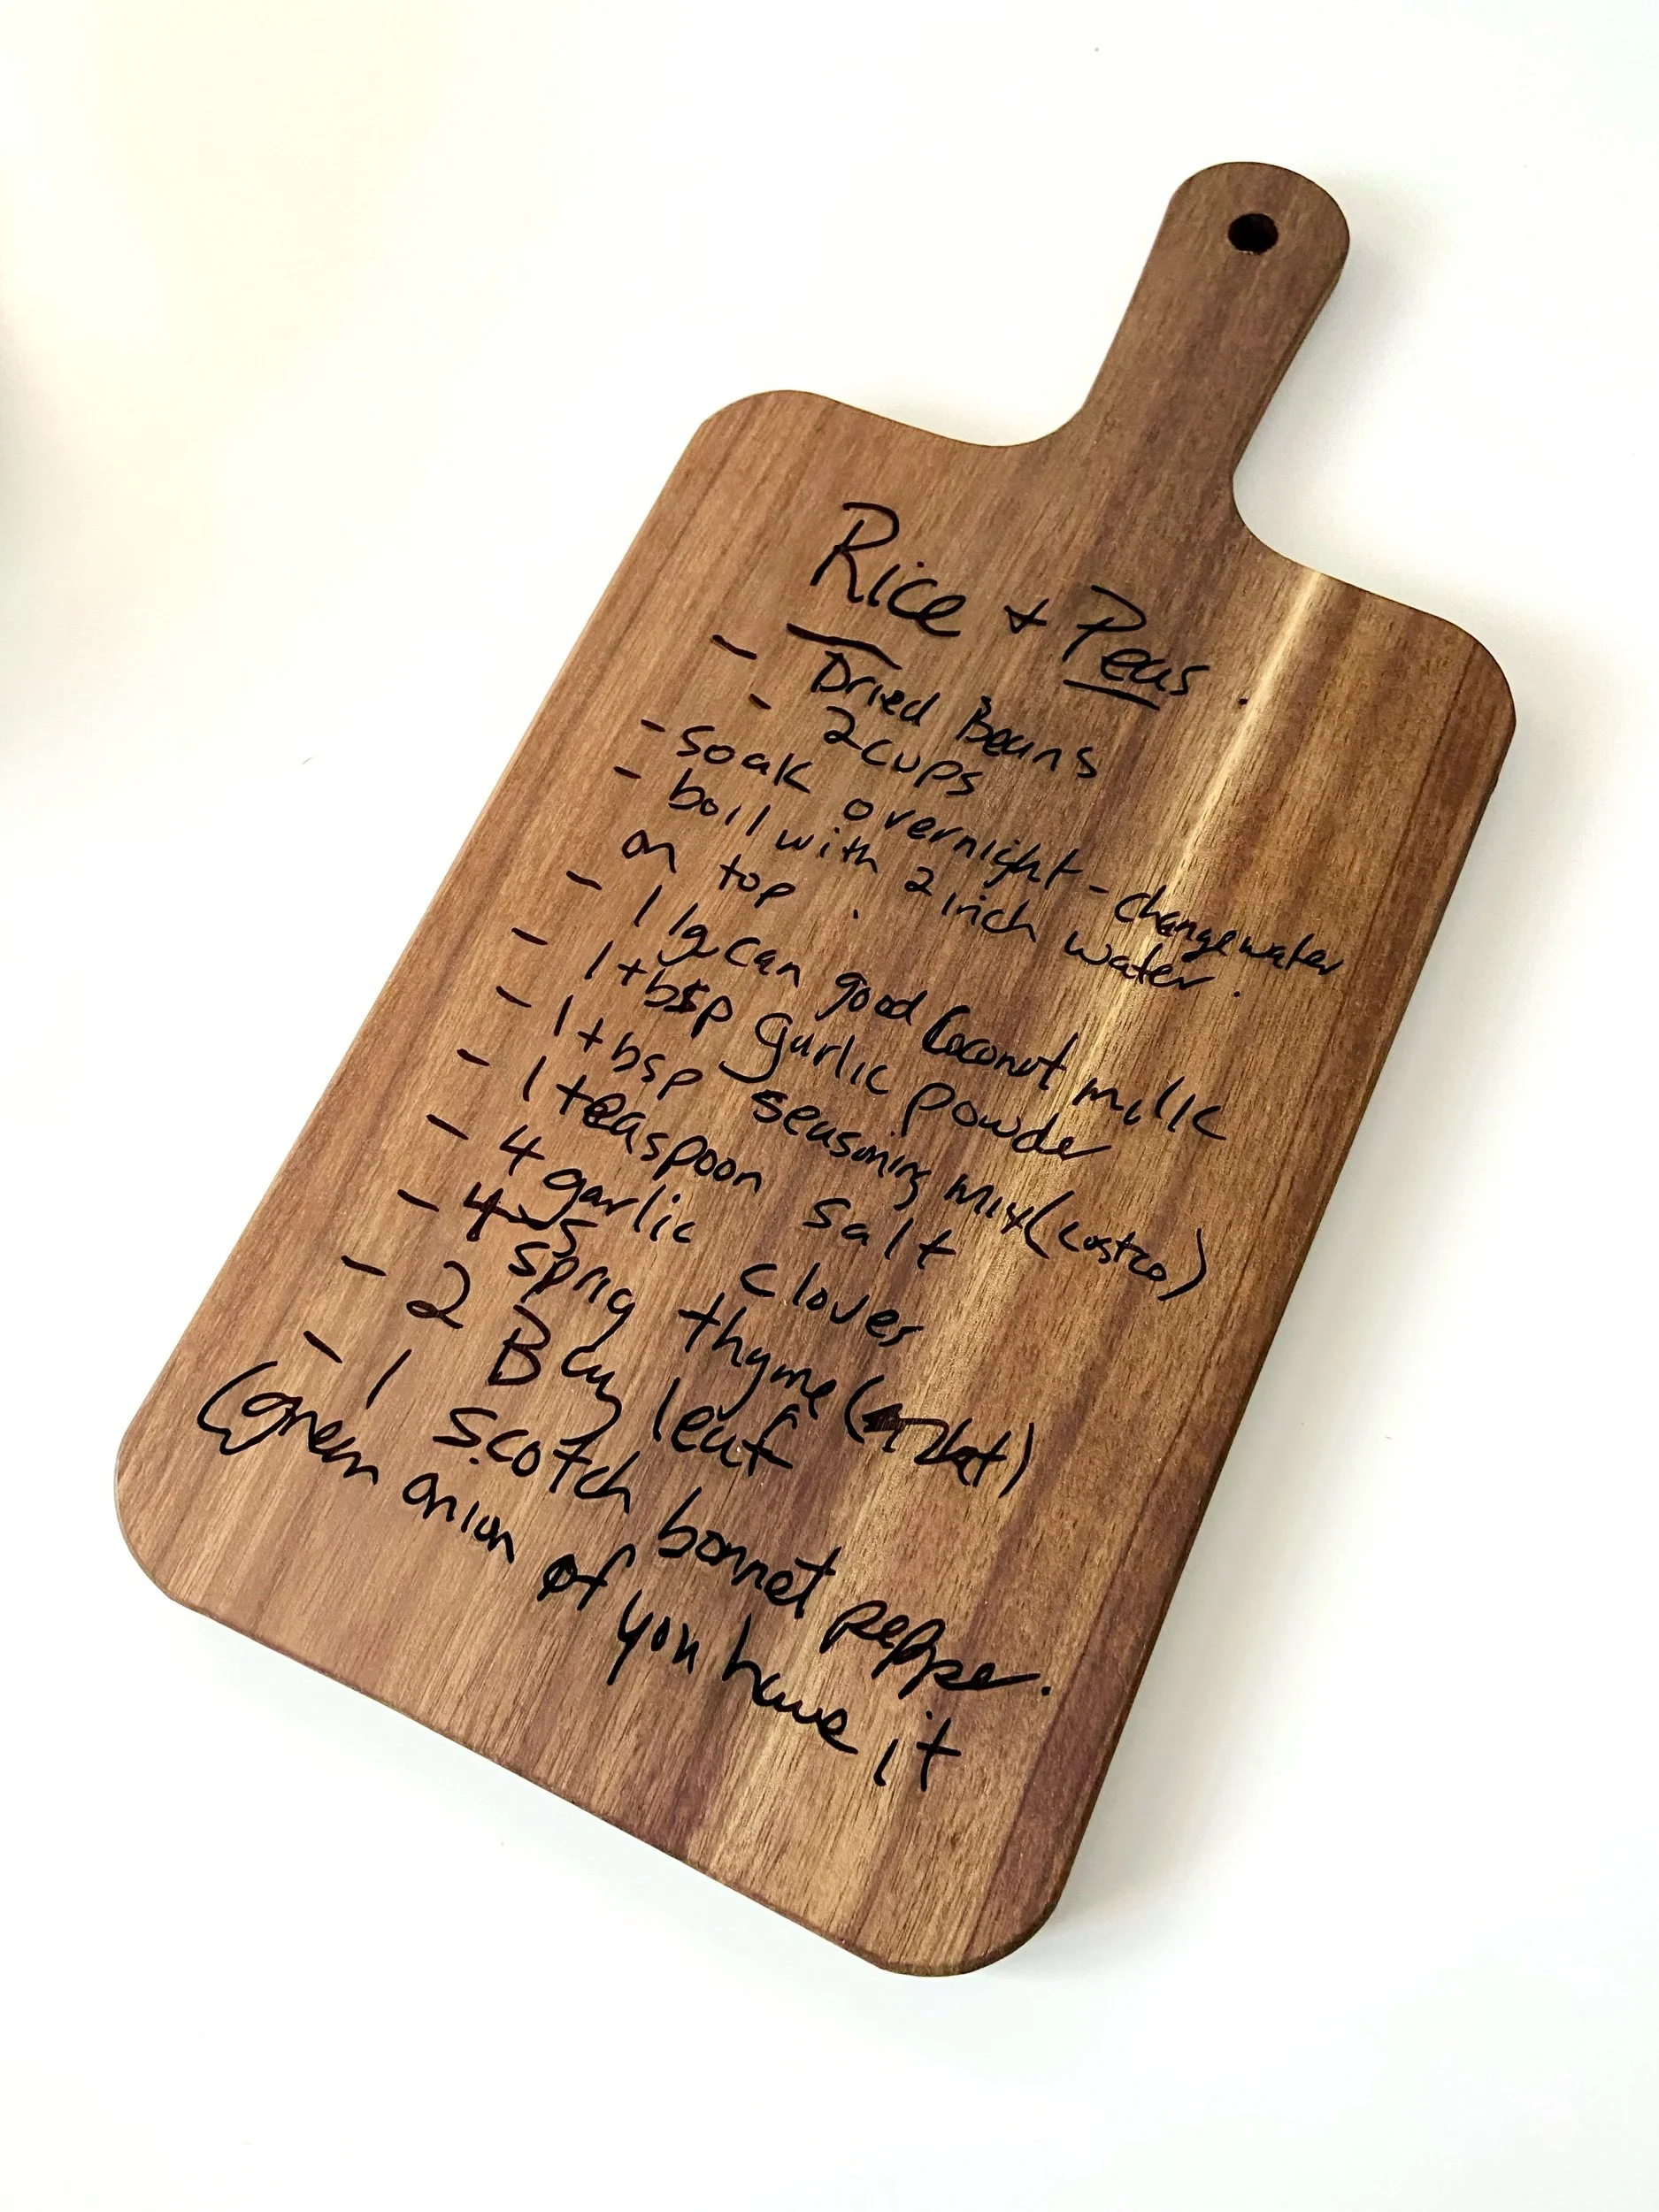 Rice + Peas.
- Dried Beans
- 2cups
- soak overnight - change water
- boil with 2 inch water.
on top.
- 1 lg can good Coconut milk
- 1 tbsp garlic powder
- 1 tbsp seasoning mix (costco)
- 1 teaspoon salt
- 4 garlic cloves
- 4-5 sprig thyme
- 2 Bay leaf
- 1 scotch bonnet pepper.
(green onion if you have it